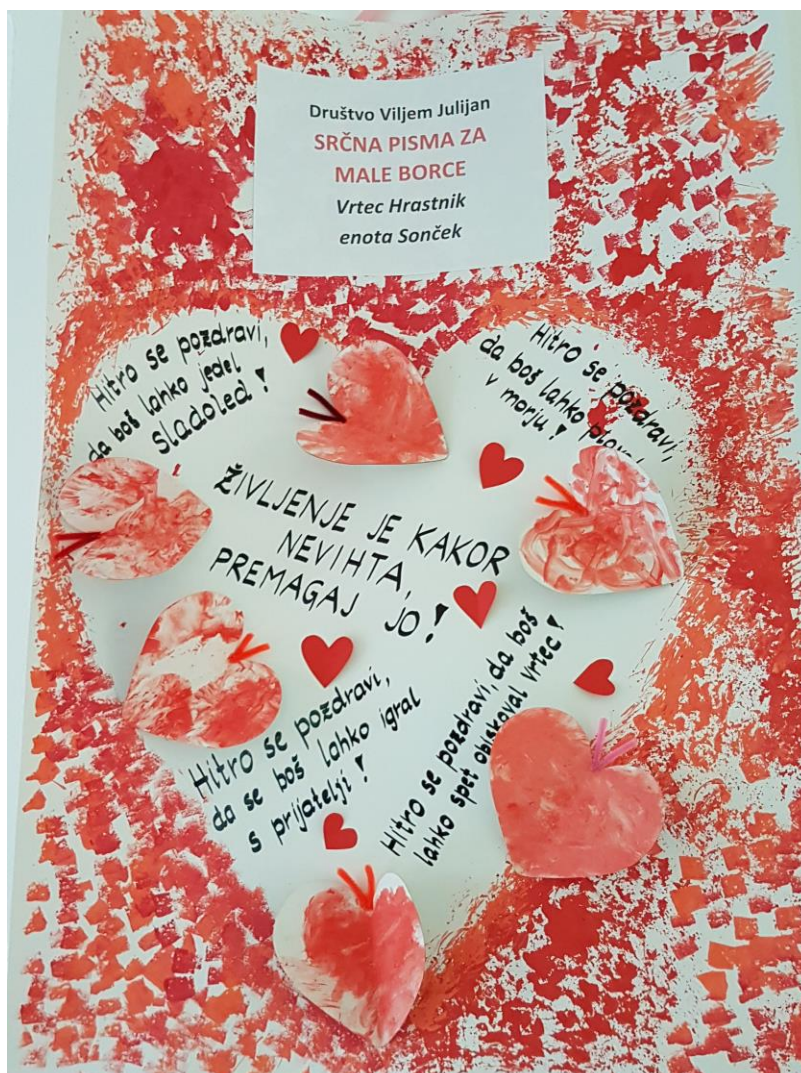 Društvo Viljem Julijan
SRČNA PISMA ZA
MALE BORCE
Vrtec Hrastnik
enota Sonček
Hitro se pozdravi,
da boš lahko jedel
sladoled!
Hitro se pozdravi,
da boš lahko
v morju!
ŽIVLJENJE JE KAKOR
NEVIHTA,
PREMAGAJ JO!
Hitro se pozdravi,
da se boš lahko igral
s prijatelji!
Hitro se pozdravi, da boš
lahko spet obiskoval vrtec!